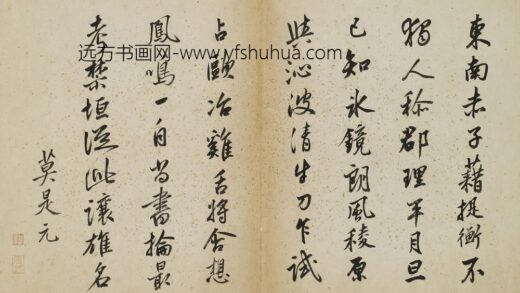 東南赤子藉提衡不
獨人称郡理平月旦
已知氷鏡朗風稜原
與沁波清牛刀乍試
占歐冶雞舌將含想
鳳鳴一自尚書掄最
老禁垣從此讓雄名
莫是元
远方书画网-www.yfshuhua.com